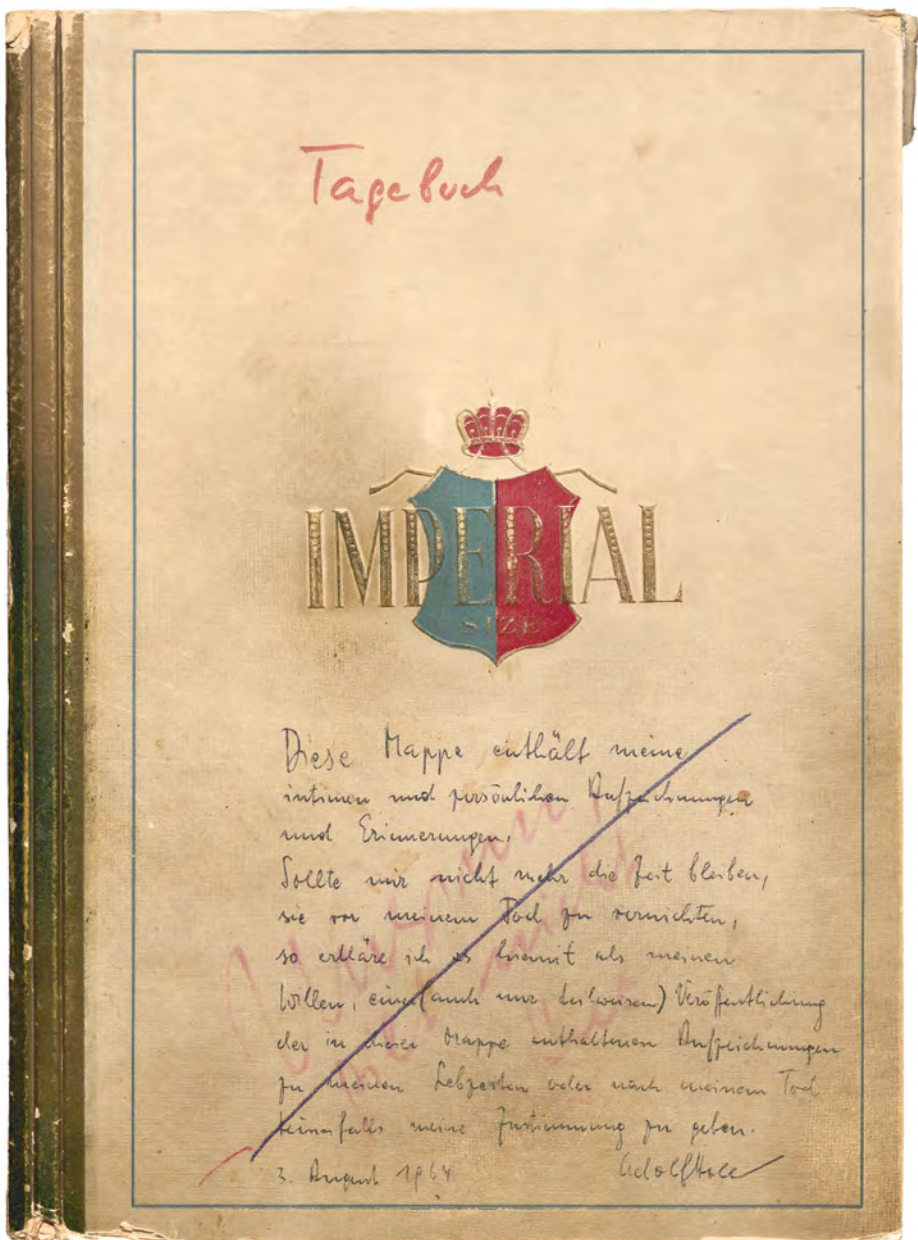 Tagebuch
IMPERIAL
SIZE
Diese Mappe enthält meine
intimen und persönlichen Aufzeichnungen
und Erinnerungen.
Sollte mir nicht mehr die Zeit bleiben,
sie vor meinem Tod zu vernichten,
so erkläre ich es hiemit als meinen
Willen, einer (auch nur teilweisen) Veröffentlichung
der in dieser Mappe enthaltenen Aufzeichnungen
zu meinen Lebzeiten oder nach meinem Tod
keinesfalls meine Zustimmung zu geben.
3. August 1964 Adolf Holl